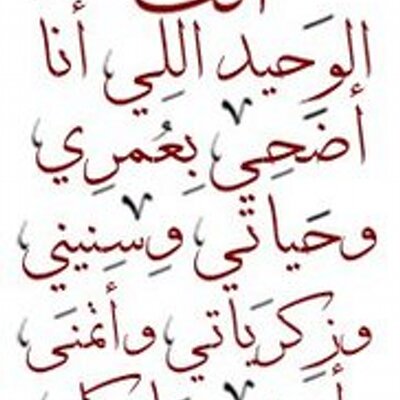 الوَحيد اللِي أنا
أضَحِي بِعُمرِي
وحَياتي وِسِنِيني
وزِكريَاتي وأتمنَى